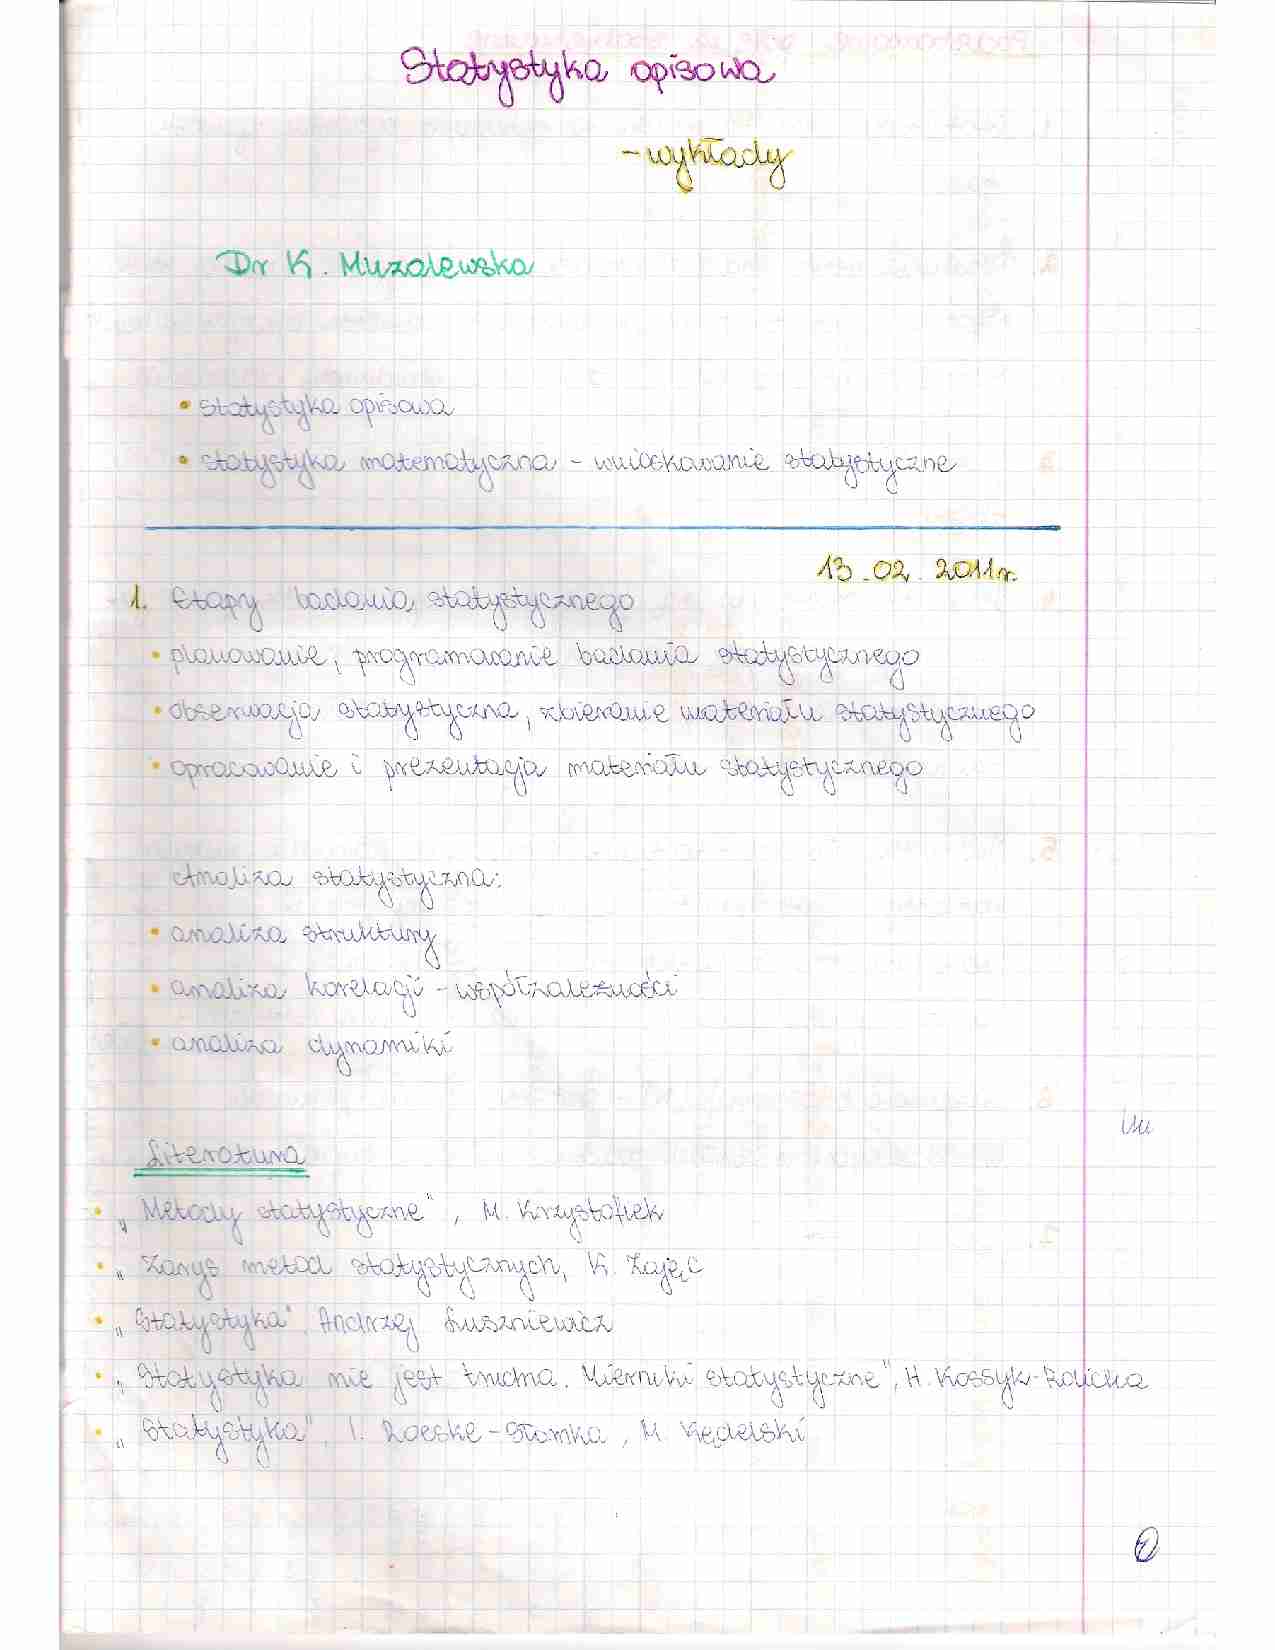 Statystyka opisowa
- wykłady
Dr K. Muzalewska
• statystyka opisowa
• statystyka matematyczna - wnioskowanie statystyczne
13.02.2011r.
1. Etapy badania statystycznego
• planowanie, programowanie badania statystycznego
• obserwacja statystyczna, zbieranie materiału statystycznego
• opracowanie i prezentacja materiału statystycznego
Analiza statystyczna:
• analiza struktury
• analiza korelacji - współzależności
• analiza dynamiki
Literatura
• „Metody statystyczne", M. Krzysztofiek
• „Zarys metod statystycznych, K. Zając
• „Statystyka" Andrzej Luszniewicz
• „Statystyka nie jest trudna. Mierniki statystyczne", H. Kassyk-Rokicka
• „Statystyka", I. Roeske-Słomka, M. Kędelski
1